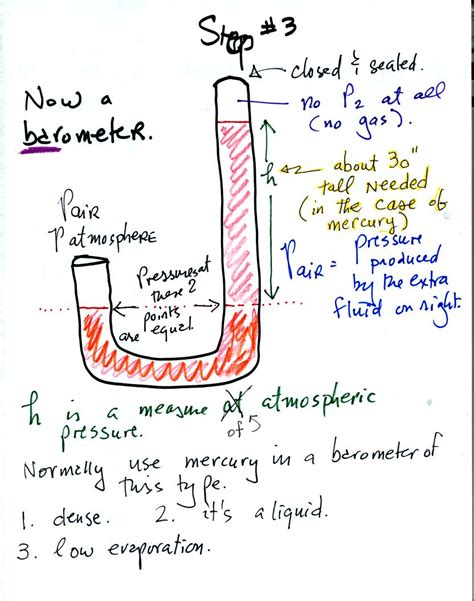 Step #3
closed & sealed.
Now a
barometer.
no P2 at all
(no gas).
h
about 30"
tall needed
(in the case of
mercury)
Pair
Patmosphere
Pressures at
these 2
points
are equal.
Pair = Pressure
produced
by the extra
fluid on right.
h is a measure at atmospheric
of 5
pressure.
Normally use mercury in a barometer of
this type.
1. dense. 2. it's a liquid.
3. low evaporation.